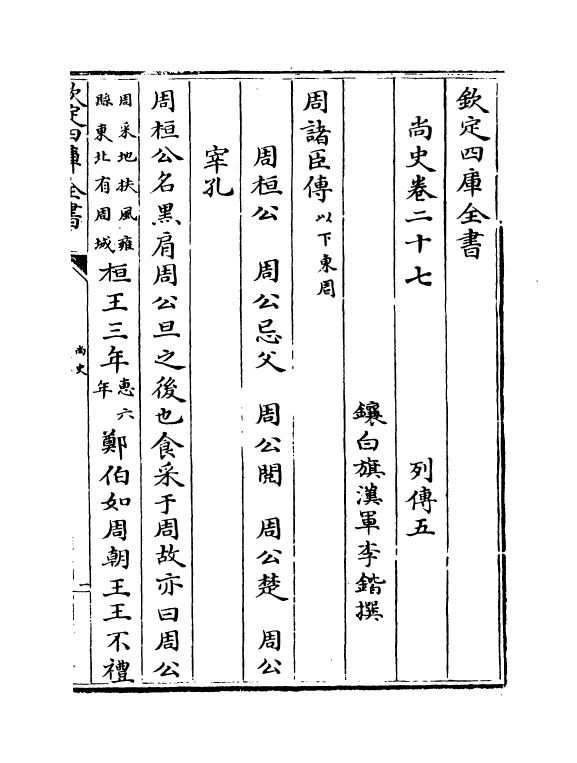 欽定四庫全書
尚史卷二十七 列傳五
鑲白旗漢軍李鍇撰
周諸臣傳以下東周
周桓公 周公忌父 周公閱 周公楚 周公
宰孔
周桓公名黑肩周公旦之後也食采于周故亦曰周公
周采地扶風雍
縣東北有周城
桓王三年
惠六
年
鄭伯如周朝王王不禮
欽定四庫全書
尚史
一